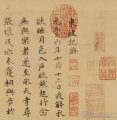 東坡記游
元豐六年十月十二日夜解衣
欲睡月色入戶欣然起行念
無與樂者遂至承天寺尋
張懷民亦未寢相與步於